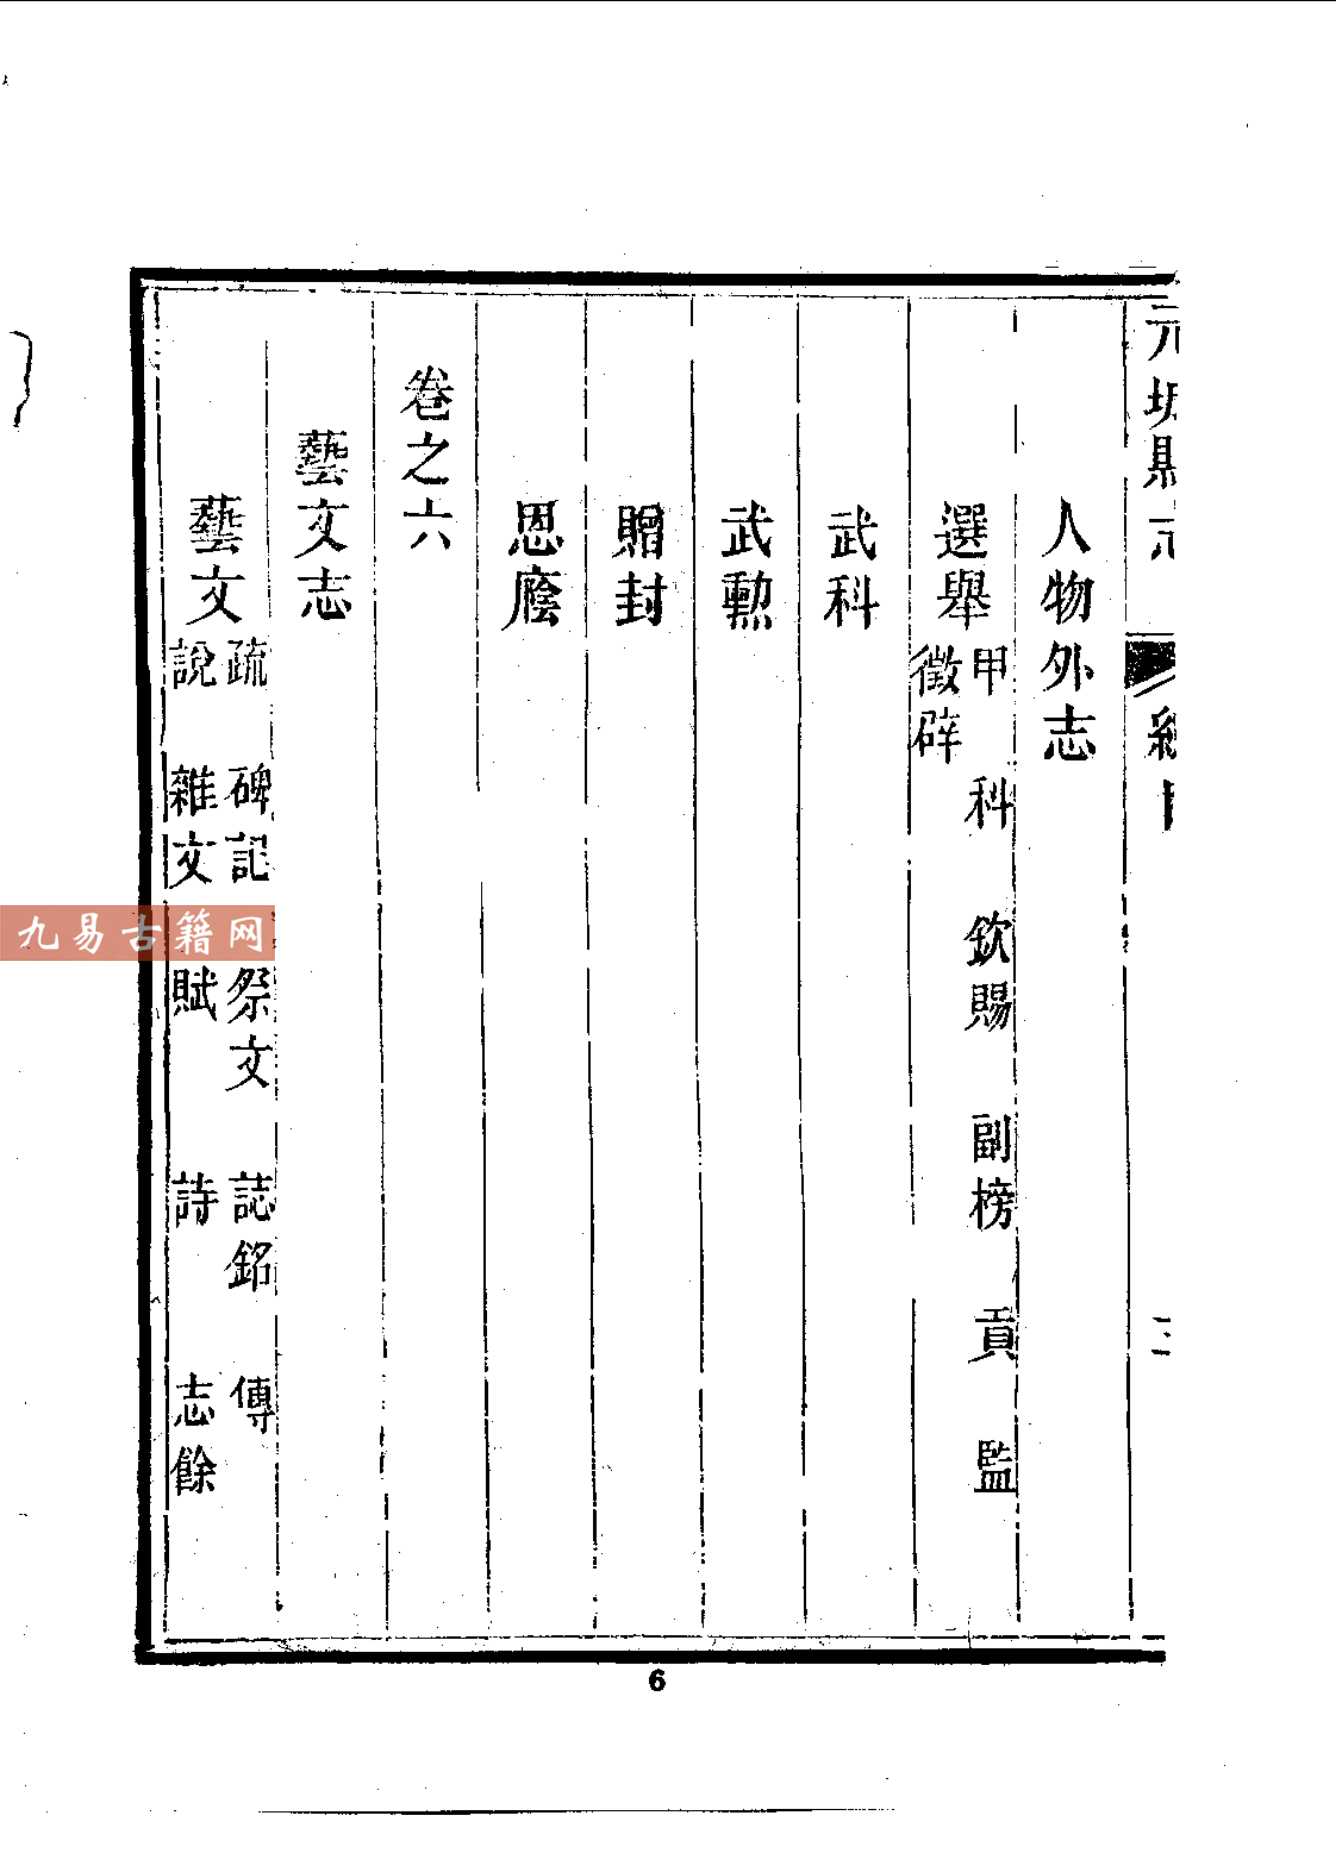 元城縣志 總目
人物外志
選舉 甲科 欽賜 副榜 貢監
徵辟
武科
武勲
贈封
恩廕
卷之六
藝文志
藝文 疏 碑記 祭文 誌銘 傳
說 雜文 賦 詩 志餘
九易古籍网
6